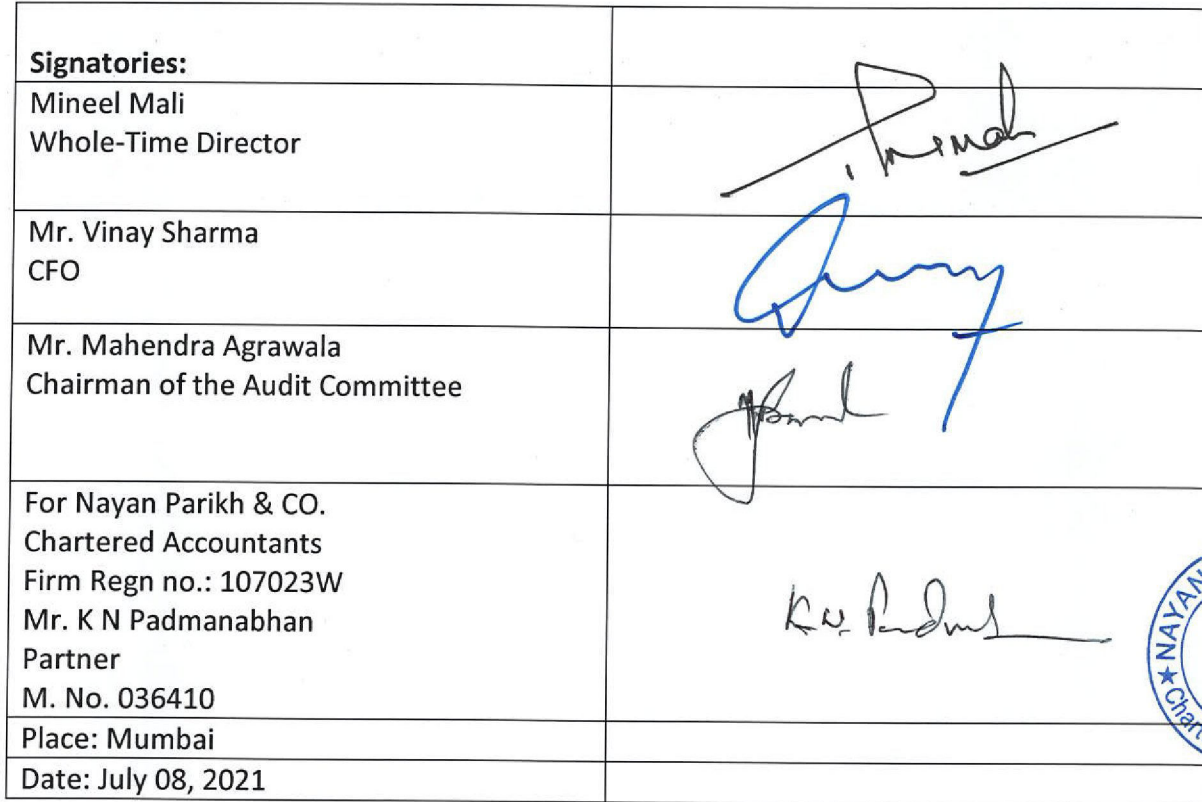 Signatories:
Mineel Mali
Whole-Time Director
Mr. Vinay Sharma
CFO
Mr. Mahendra Agrawala
Chairman of the Audit Committee
For Nayan Parikh & CO.
Chartered Accountants
Firm Regn no.: 107023W
Mr. K N Padmanabhan
Partner
M. No. 036410
K.N.
★ NAYAN
Chart
Place: Mumbai
Date: July 08, 2021